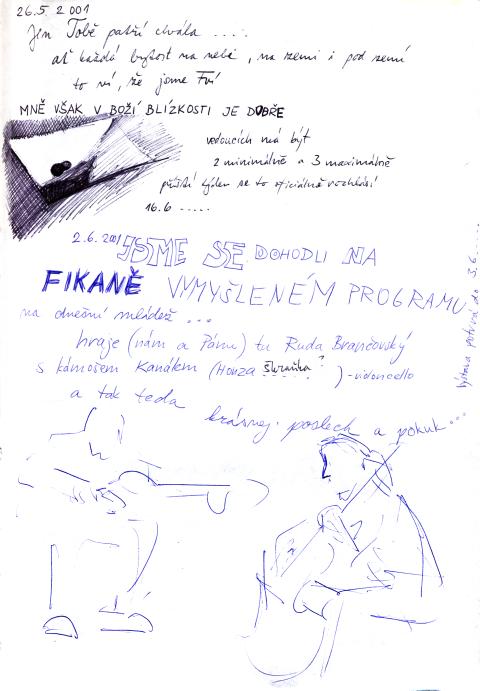 26.5 2001
Jen Tobě patří chvála .....
ať každá bytost na nebi, na zemi i pod zemí
to ví, že jsme Tví
MNĚ VŠAK V BOŽÍ BLÍZKOSTI JE DOBŘE
vedoucích má být
2 minimálně a 3 maximálně
příští týden se to oficiálně rozhlásí
16.6 .....
2.6.2001 JSME SE DOHODLI NA
FIKANĚ VYMYŠLENÉM PROGRAMU
na dnešní mládež ...
hraje (nám a Pánu) tu Ruda Brančovský
s kámošem Kanálem (Honza ?) - violoncello
a tak teda
krásnej poslech a pokuk...
výstava potrvá do 3.6.....